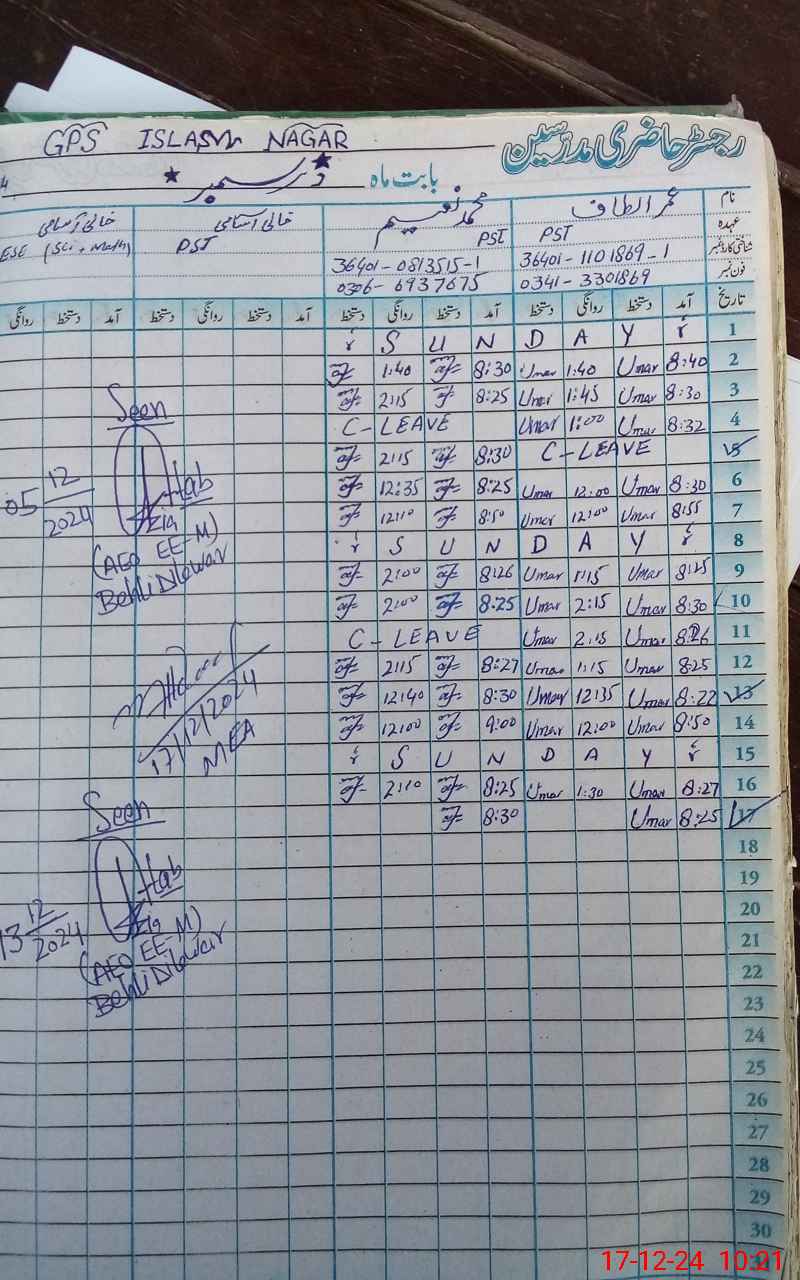 GPS ISLAM NAGAR رجسٹر حاضری مدرسین
بابت ماہ دسمبر
نام عمر الطاف محمد نعیم خالی آسامی خالی آسامی
عہدہ PST PST PST ESE (Sci + Math)
شناختی کارڈ نمبر 36401-1101869-1 36401-0813515-1
فون نمبر 0341-3301869 0306-6937675
تاریخ آمد دستخط روانگی دستخط آمد دستخط روانگی دستخط آمد دستخط روانگی دستخط آمد دستخط روانگی
1 S U N D A Y
2 8:40 Umar 1:40 Umar 8:30 1:40
3 8:30 Umar 1:45 Umar 8:25 2:15
4 8:32 Umar 1:00 Umar C-LEAVE
5 C-LEAVE 8:30 2:15
6 8:30 Umar 12:00 Umar 8:25 12:35
7 8:55 Umar 12:00 Umar 8:50 12:10
8 S U N D A Y
9 8:25 Umar 1:15 Umar 8:26 2:00
10 8:30 Umar 2:15 Umar 8:25 2:00
11 8:26 Umar 2:15 Umar C-LEAVE
12 8:25 Umar 1:15 Umar 8:27 2:15
13 8:22 Umar 12:35 Umar 8:30 12:40
14 8:50 Umar 12:00 Umar 9:00 12:00
15 S U N D A Y
16 8:27 Umar 1:30 Umar 8:25 2:10
17 8:25 Umar 8:30
18
19
20
21
22
23
24
25
26
27
28
29
30
31
Seen
05 12/2024
(AEO EE-M)
Behli Dilawar
17/12/2024
MEA
Seen
13 12/2024
(AEO EE-M)
Behli Dilawar
17-12-24 10:21